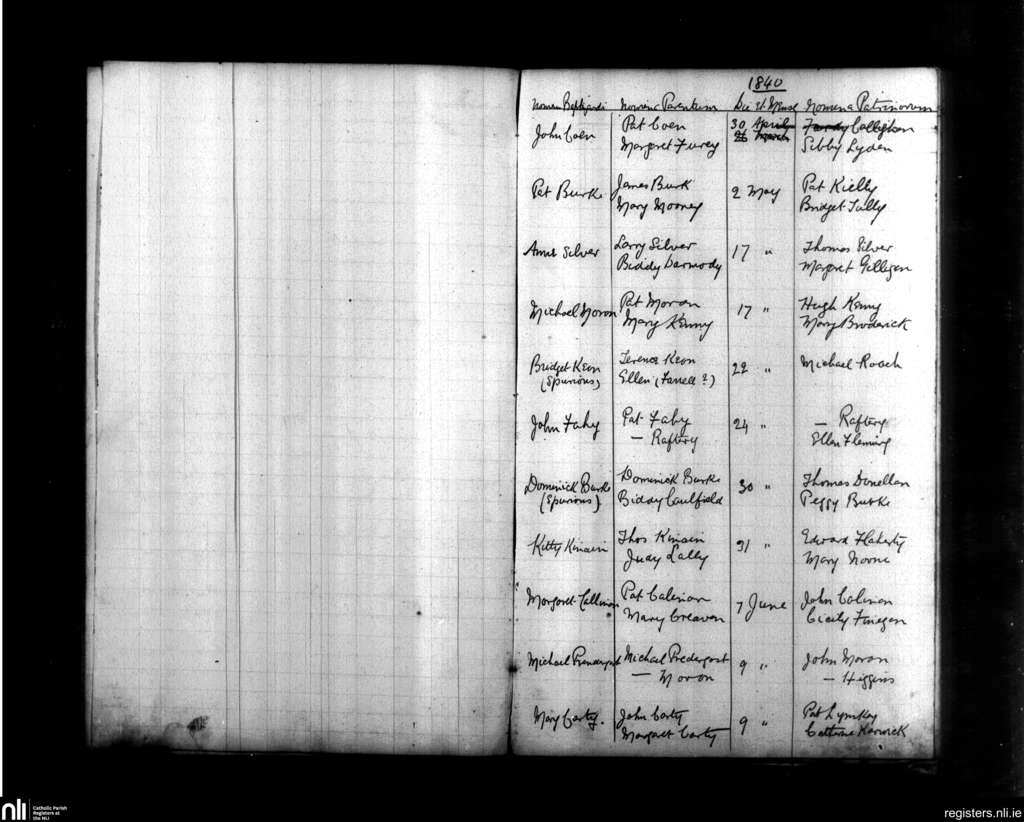 1840
Nomen Baptizandi Nomina Parentum Die et Mense Nomina Patrinorum
John Coen Pat Coen 30 April Callaghan
Margaret Furey 26 March Sibby Lyden
Pat Burke James Burk 2 May Pat Kielly
Mary Mooney Bridget Tully
Anne Silver Larry Silver 17 " Thomas Silver
Biddy Darmody Margret Gilligan
Michael Moron Pat Moron 17 " Hugh Kenny
Mary Kenny Mary Broderick
Bridget Keon Terence Keon 22 " Michael Roach
(Spurious) Ellen (Farrell ?)
John Fahy Pat Fahy 24 " — Raftery
— Raftery Ellen Fleming
Dominick Burke Dominick Burke 30 " Thomas Donellan
(Spurious) Biddy Caulfield Peggy Burke
Kitty Kinain Thos Kinain 31 " Edward Flaherty
Judy Lally Mary Noone
Margaret Callinan Pat Calinan 7 June John Calinan
Mary Creaven Cicily Finegan
Michael Prendergast Michael Predergast 9 " John Moran
— Moron — Higgins
Mary Carty. John Carty 9 " Pat Lynskey
Margaret Carty
nli Catholic Parish
Registers at
the NLI
registers.nli.ie